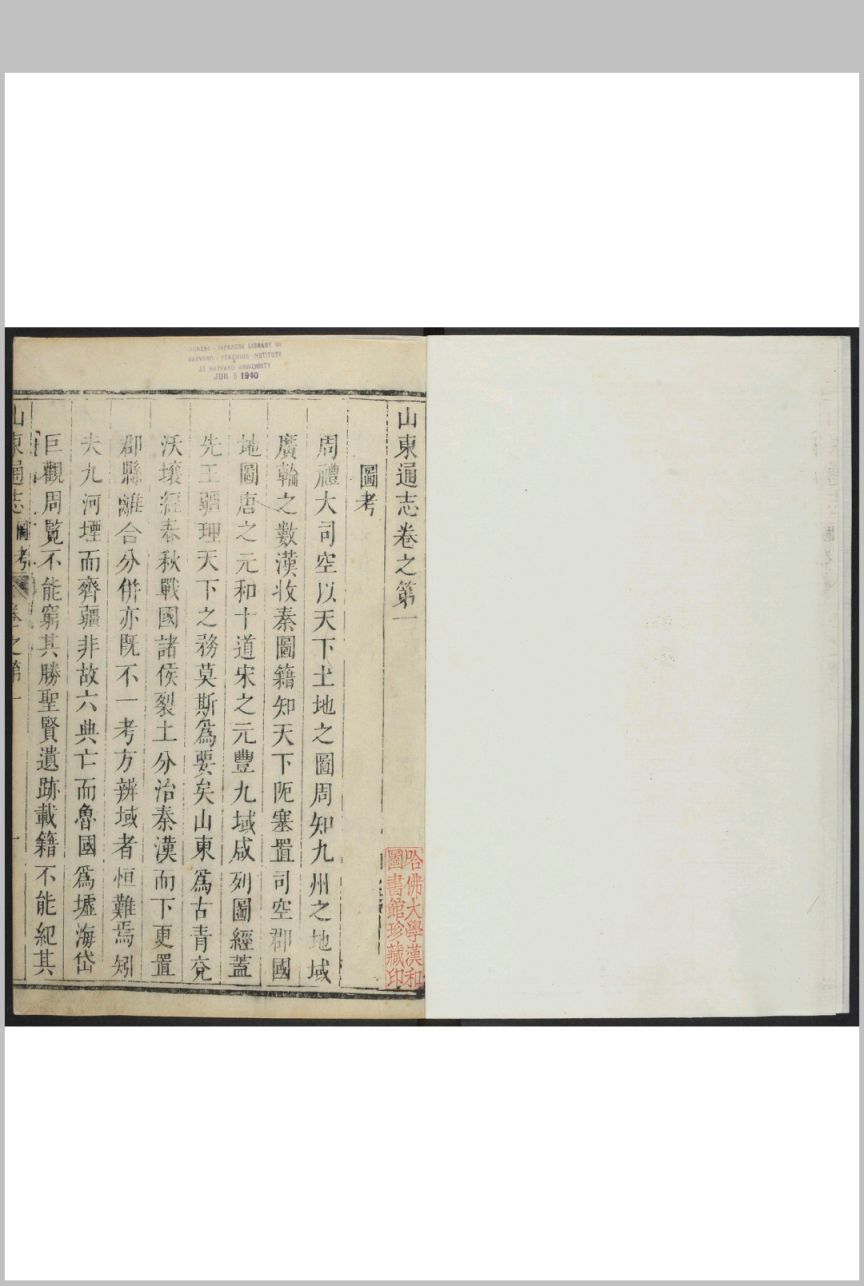 CHINESE - JAPANESE LIBRARY OF
HARVARD - YENCHING INSTITUTE
AT HARVARD UNIVERSITY
JUN 5 1940
山東通志卷之第一
圖考
周禮大司空以天下土地之圖周知九州之地域
廣輪之數漢收秦圖籍知天下阨塞置司空郡國
地圖唐之元和十道宋之元豐九域咸列圖經蓋
先王疆理天下之務莫斯爲要矣山東爲古青兗
沃壤經春秋戰國諸侯裂土分治秦漢而下更置
郡縣離合分併亦旣不一考方辨域者恒難焉矧
夫九河堙而齊疆非故六典亡而魯國爲墟海岱
巨觀周覽不能窮其勝聖賢遺跡載籍不能紀其
山東通志 圖考 卷之第一 一
哈佛大學漢和
圖書館珍藏印